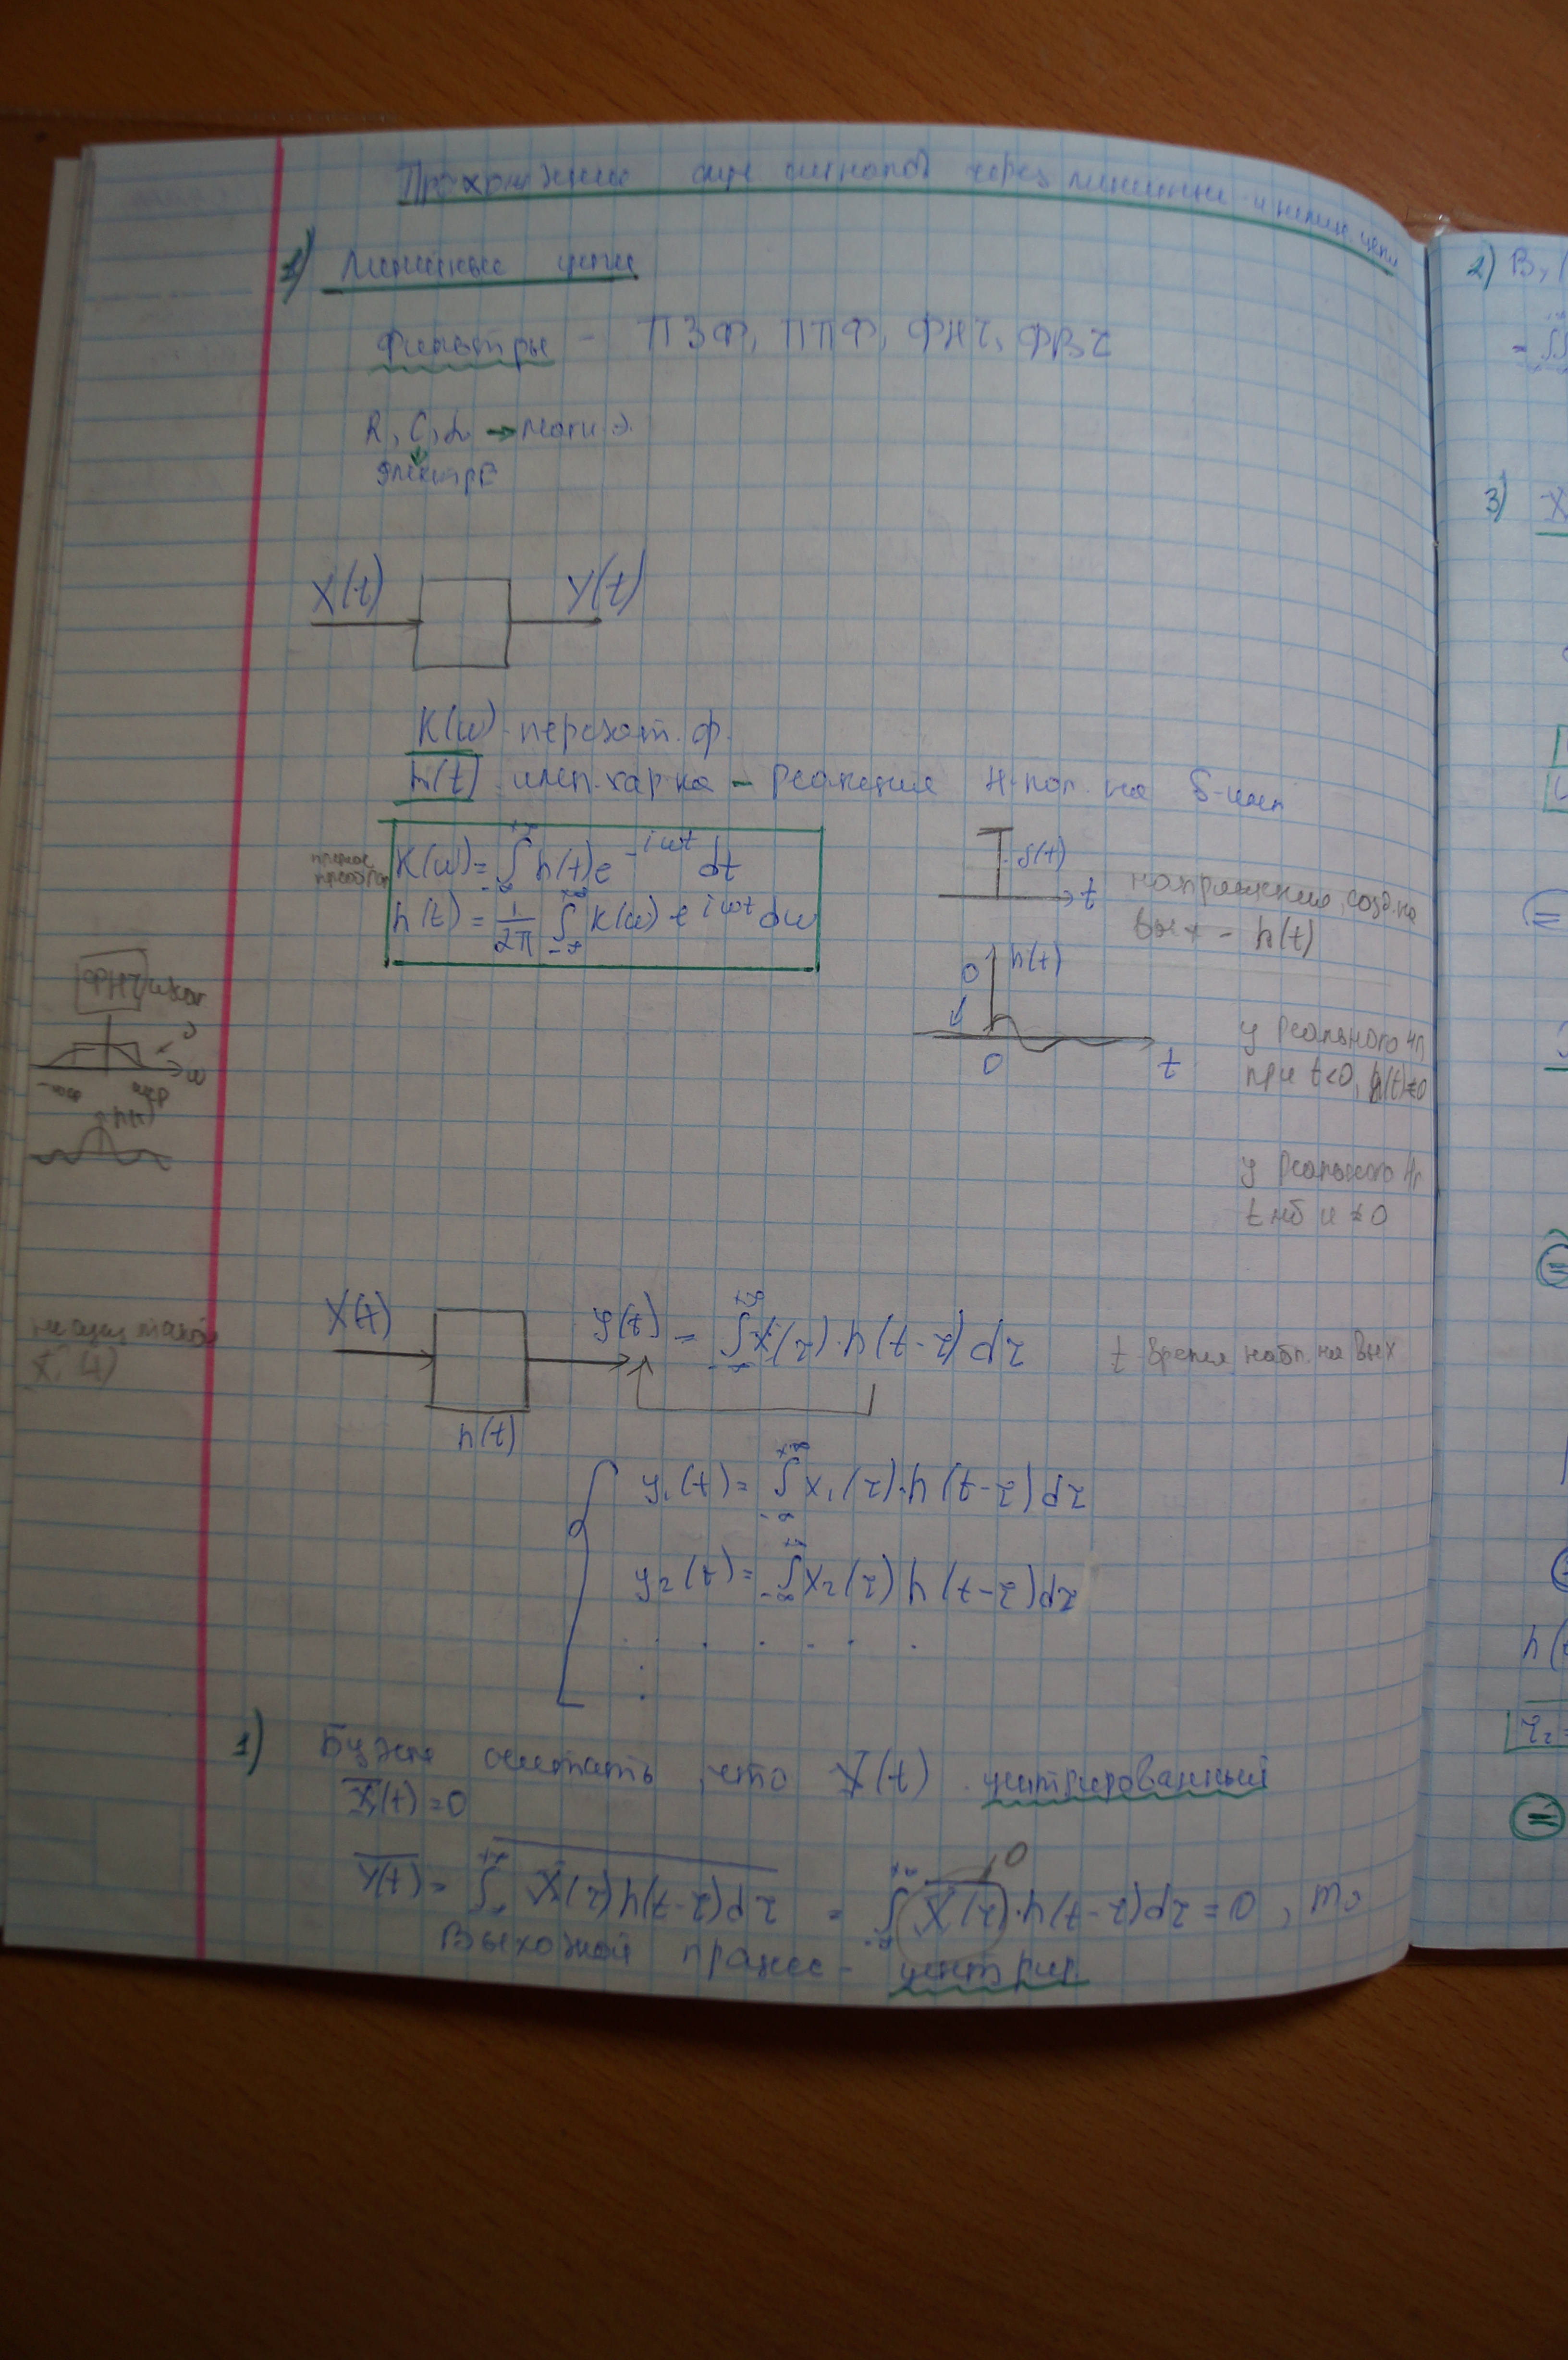 Прохождение случ сигналов через линейные и нелин. цепи
1) Линейные цепи
Фильтры - ПЗФ, ППФ, ФНЧ, ФВЧ
R, C, L → магн э.
электр
X(t) Y(t)
K(ω) - передат. ф.
h(t) - имп. хар-ка - реакция на δ-имп
прямое преобраз
K(ω) = ∫_{-∞}^{+∞} h(t) e^{-iωt} dt
h(t) = 1/2π ∫_{-∞}^{+∞} K(ω) e^{iωt} dω
δ(t)
t
напряжение, созд. на
вых - h(t)
0 h(t)
0 t
у реального чп
при t<0, h(t)=0
у реального
ФНЧ
ω
h(t)
X(t) y(t) = ∫_{-∞}^{+∞} x(τ)·h(t-τ)dτ
t время набл. на вых
h(t)
y₁(t) = ∫_{-∞}^{+∞} x₁(τ)·h(t-τ)dτ
y₂(t) = ∫_{-∞}^{+∞} x₂(τ) h(t-τ)dτ
. . . . . .
1) Будем считать, что X(t) центрированный
X̅(t) = 0
Y̅(t) = ∫ X(τ)h(t-τ)dτ = ∫ X̅(τ)·h(t-τ)dτ = 0, то
0
Выходной процесс - центрир.
2) В
=
3) X
=
h(t
τ₂ =
=